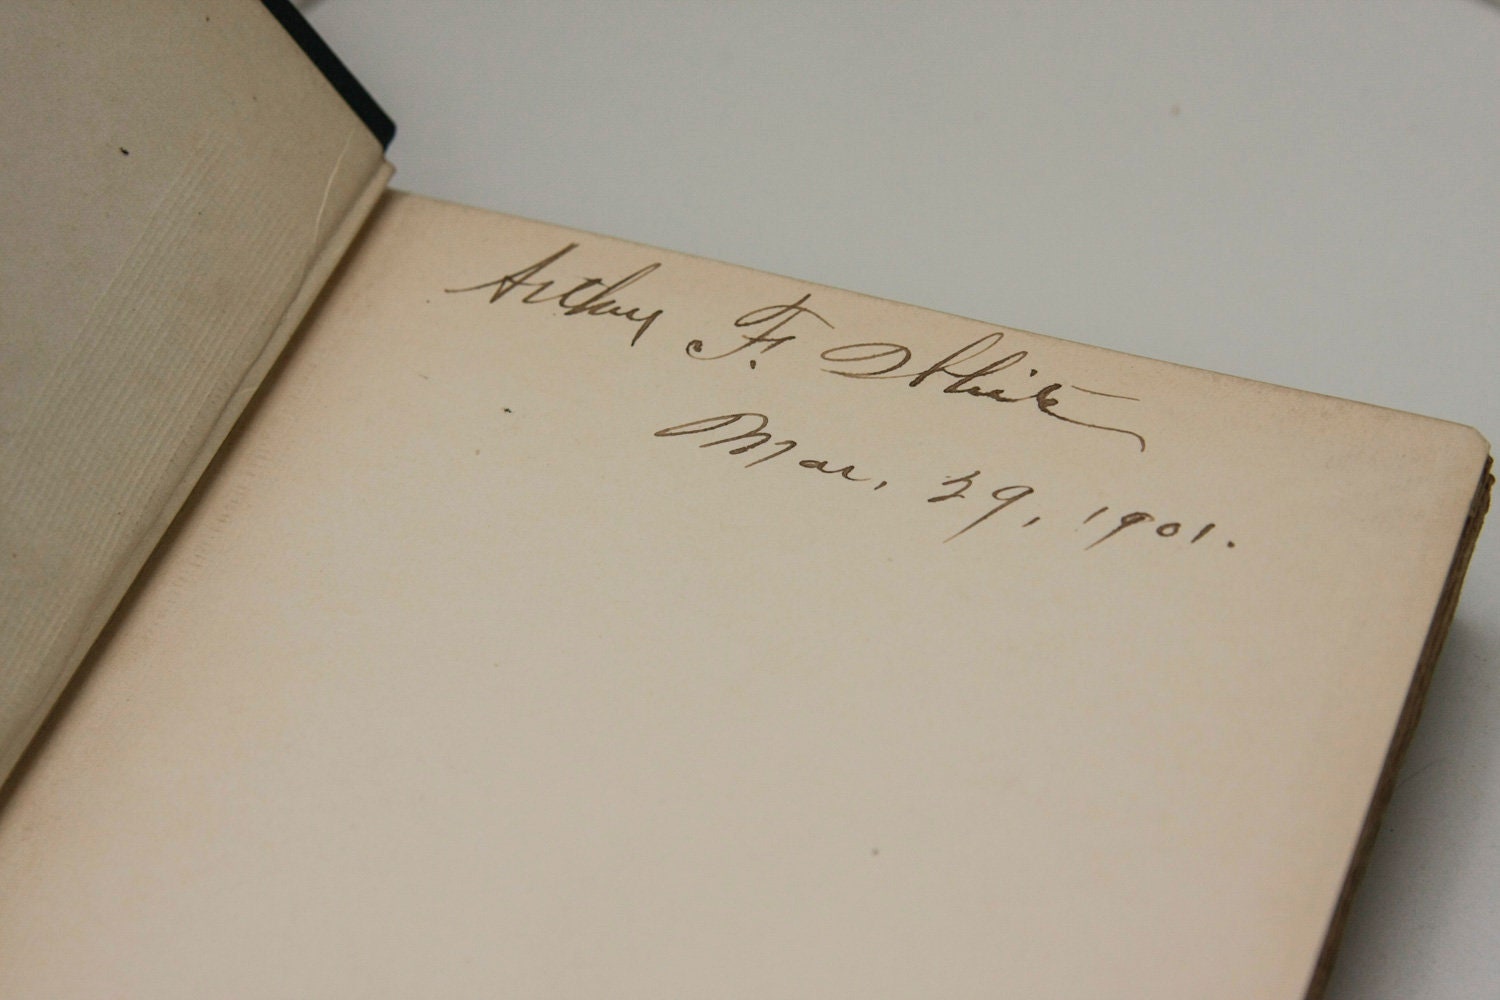 Arthur F. White
Mar. 29, 1901.